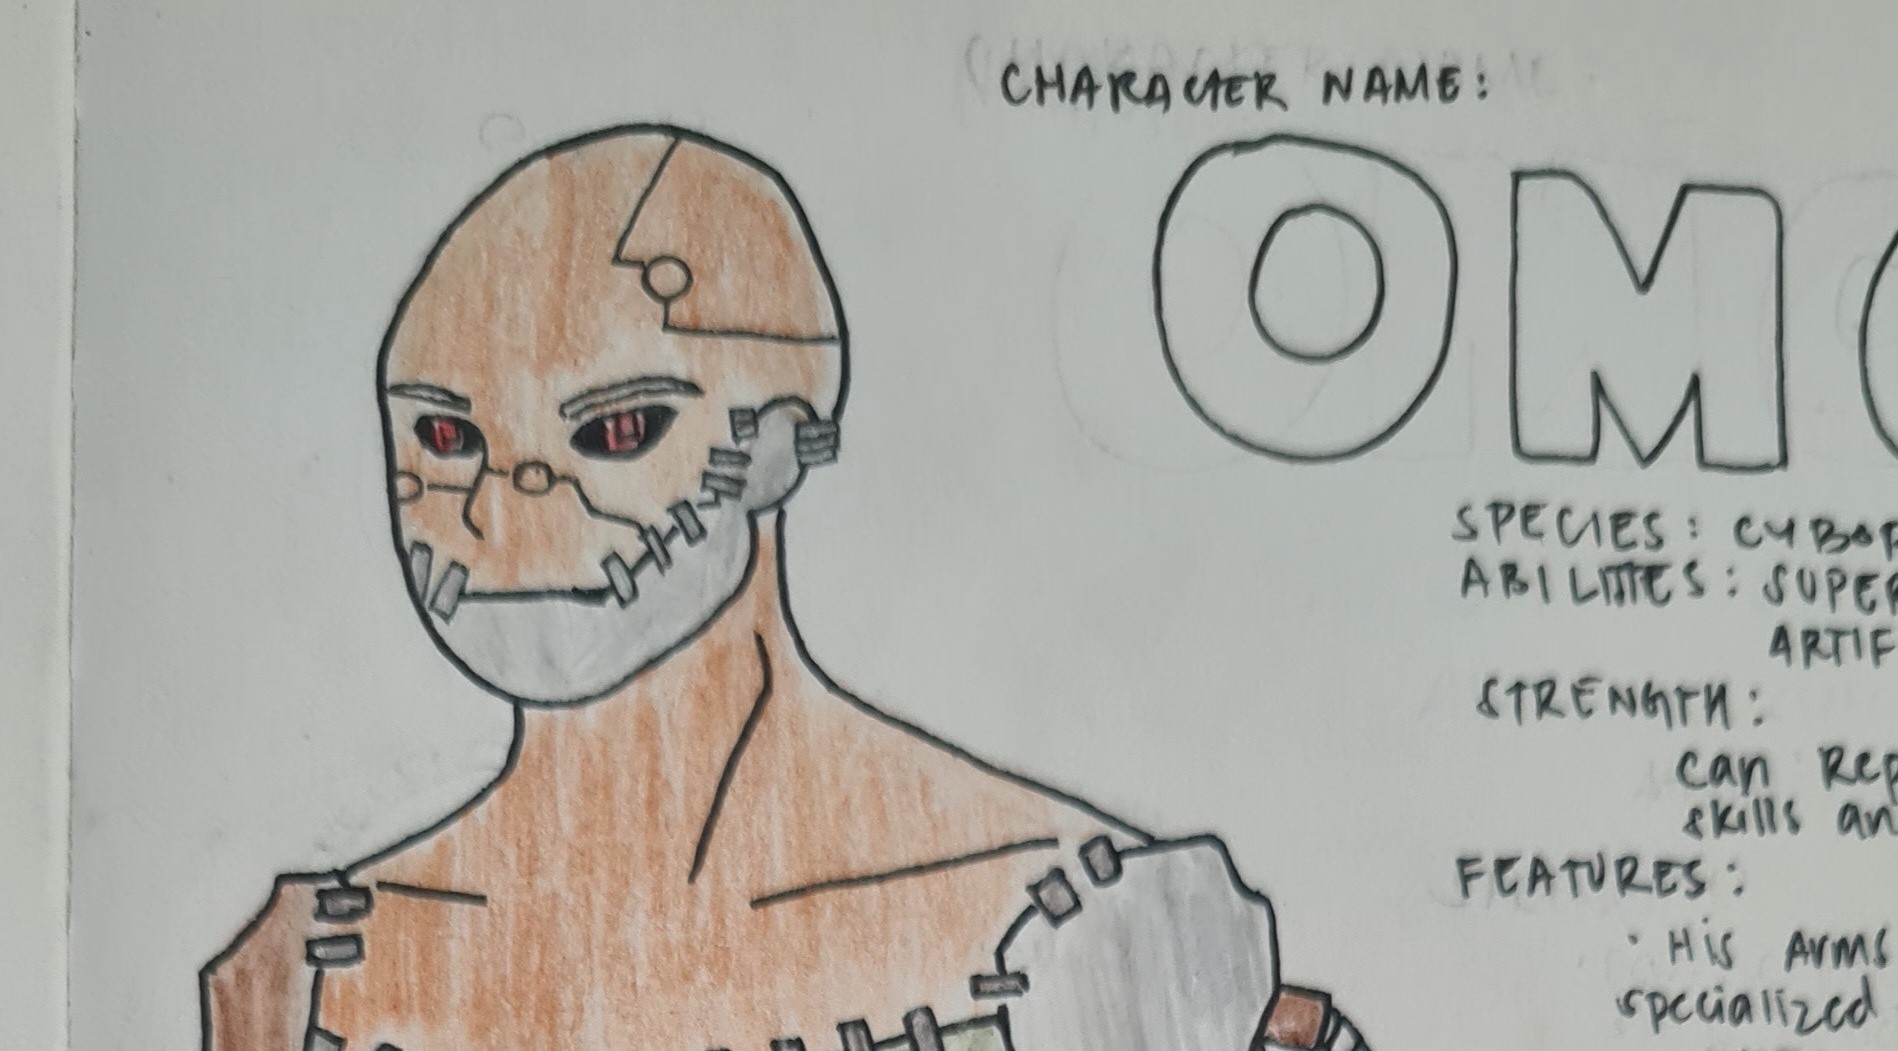 CHARACTER NAME:
OM
SPECIES: CYBOR
ABILITIES: SUPER
ARTIF
STRENGTH:
can Rep
skills an
FEATURES:
• His Arms
specialized